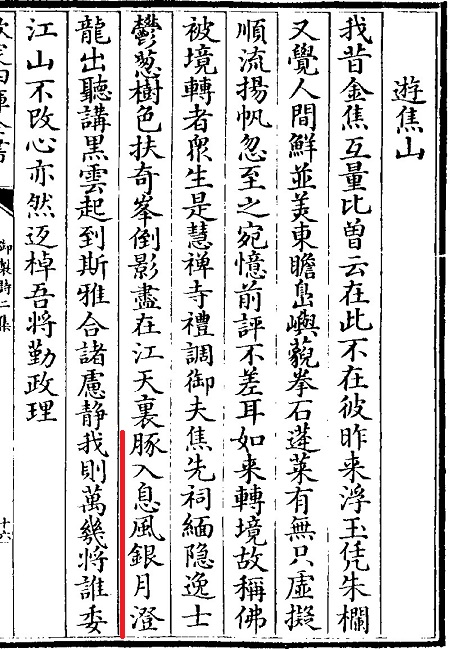 遊焦山
我昔金焦互量比曽云在此不在彼昨来浮玉凭朱欄
又覺人間鮮並美東瞻島嶼藐拳石蓬萊有無只虛擬
順流揚帆忽至之宛憶前評不差耳如来轉境故稱佛
被境轉者衆生是慧禅寺禮調御夫焦先祠緬隐逸士
鬱葱樹色扶奇峯倒影盡在江天裏豚入息風銀月澄
龍出聽講黒雲起到斯雅合諸慮静我則萬幾將誰委
江山不改心亦然返棹吾將勤政理
御製詩二集
十六